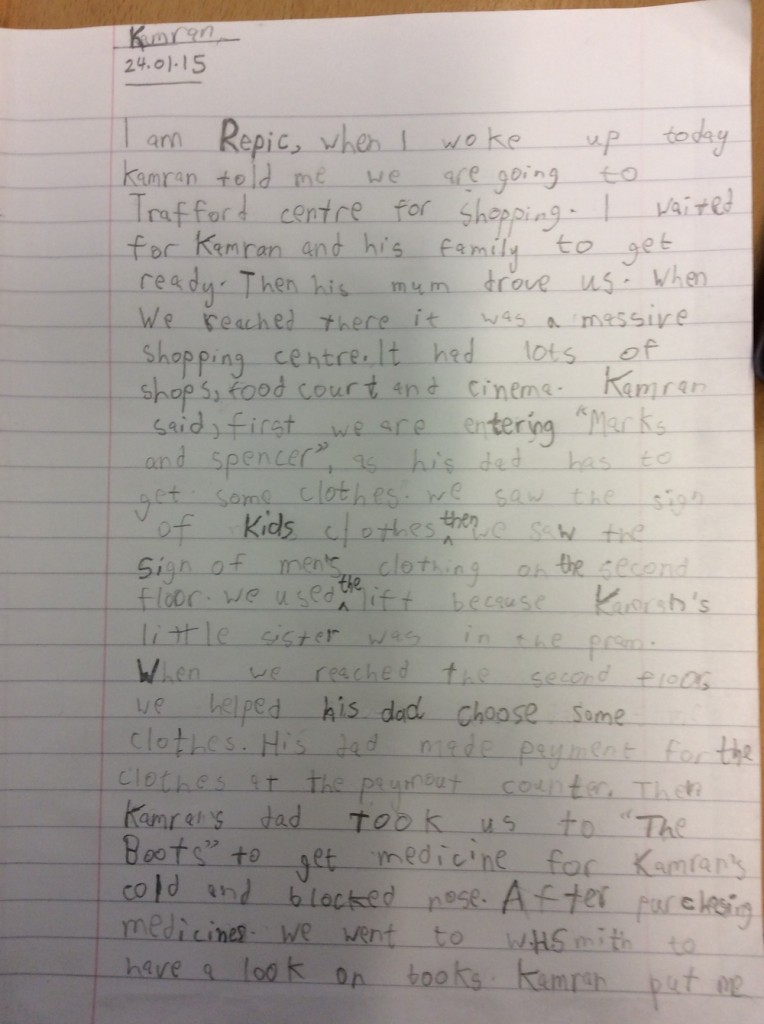 Kamran
24.01.15
I am Repic, when I woke up today
Kamran told me we are going to
Trafford centre for shopping. I waited
for Kamran and his family to get
ready. Then his mum drove us. When
We reached there it was a massive
shopping centre. It had lots of
shops, food court and cinema. Kamran
said, first we are entering "Marks
and spencer", as his dad has to
get some clothes. we saw the sign
of Kids clothes then we saw the
sign of men's clothing on the second
floor. we used the lift because Kamran's
little sister was in the pram.
When we reached the second floor
we helped his dad choose some
clothes. His dad made payment for the
clothes at the payment counter. Then
Kamran's dad took us to "The
Boots" to get medicine for Kamran's
cold and blocked nose. After purchesing
medicines. we went to WHSmith to
have a look on books. Kamran put me